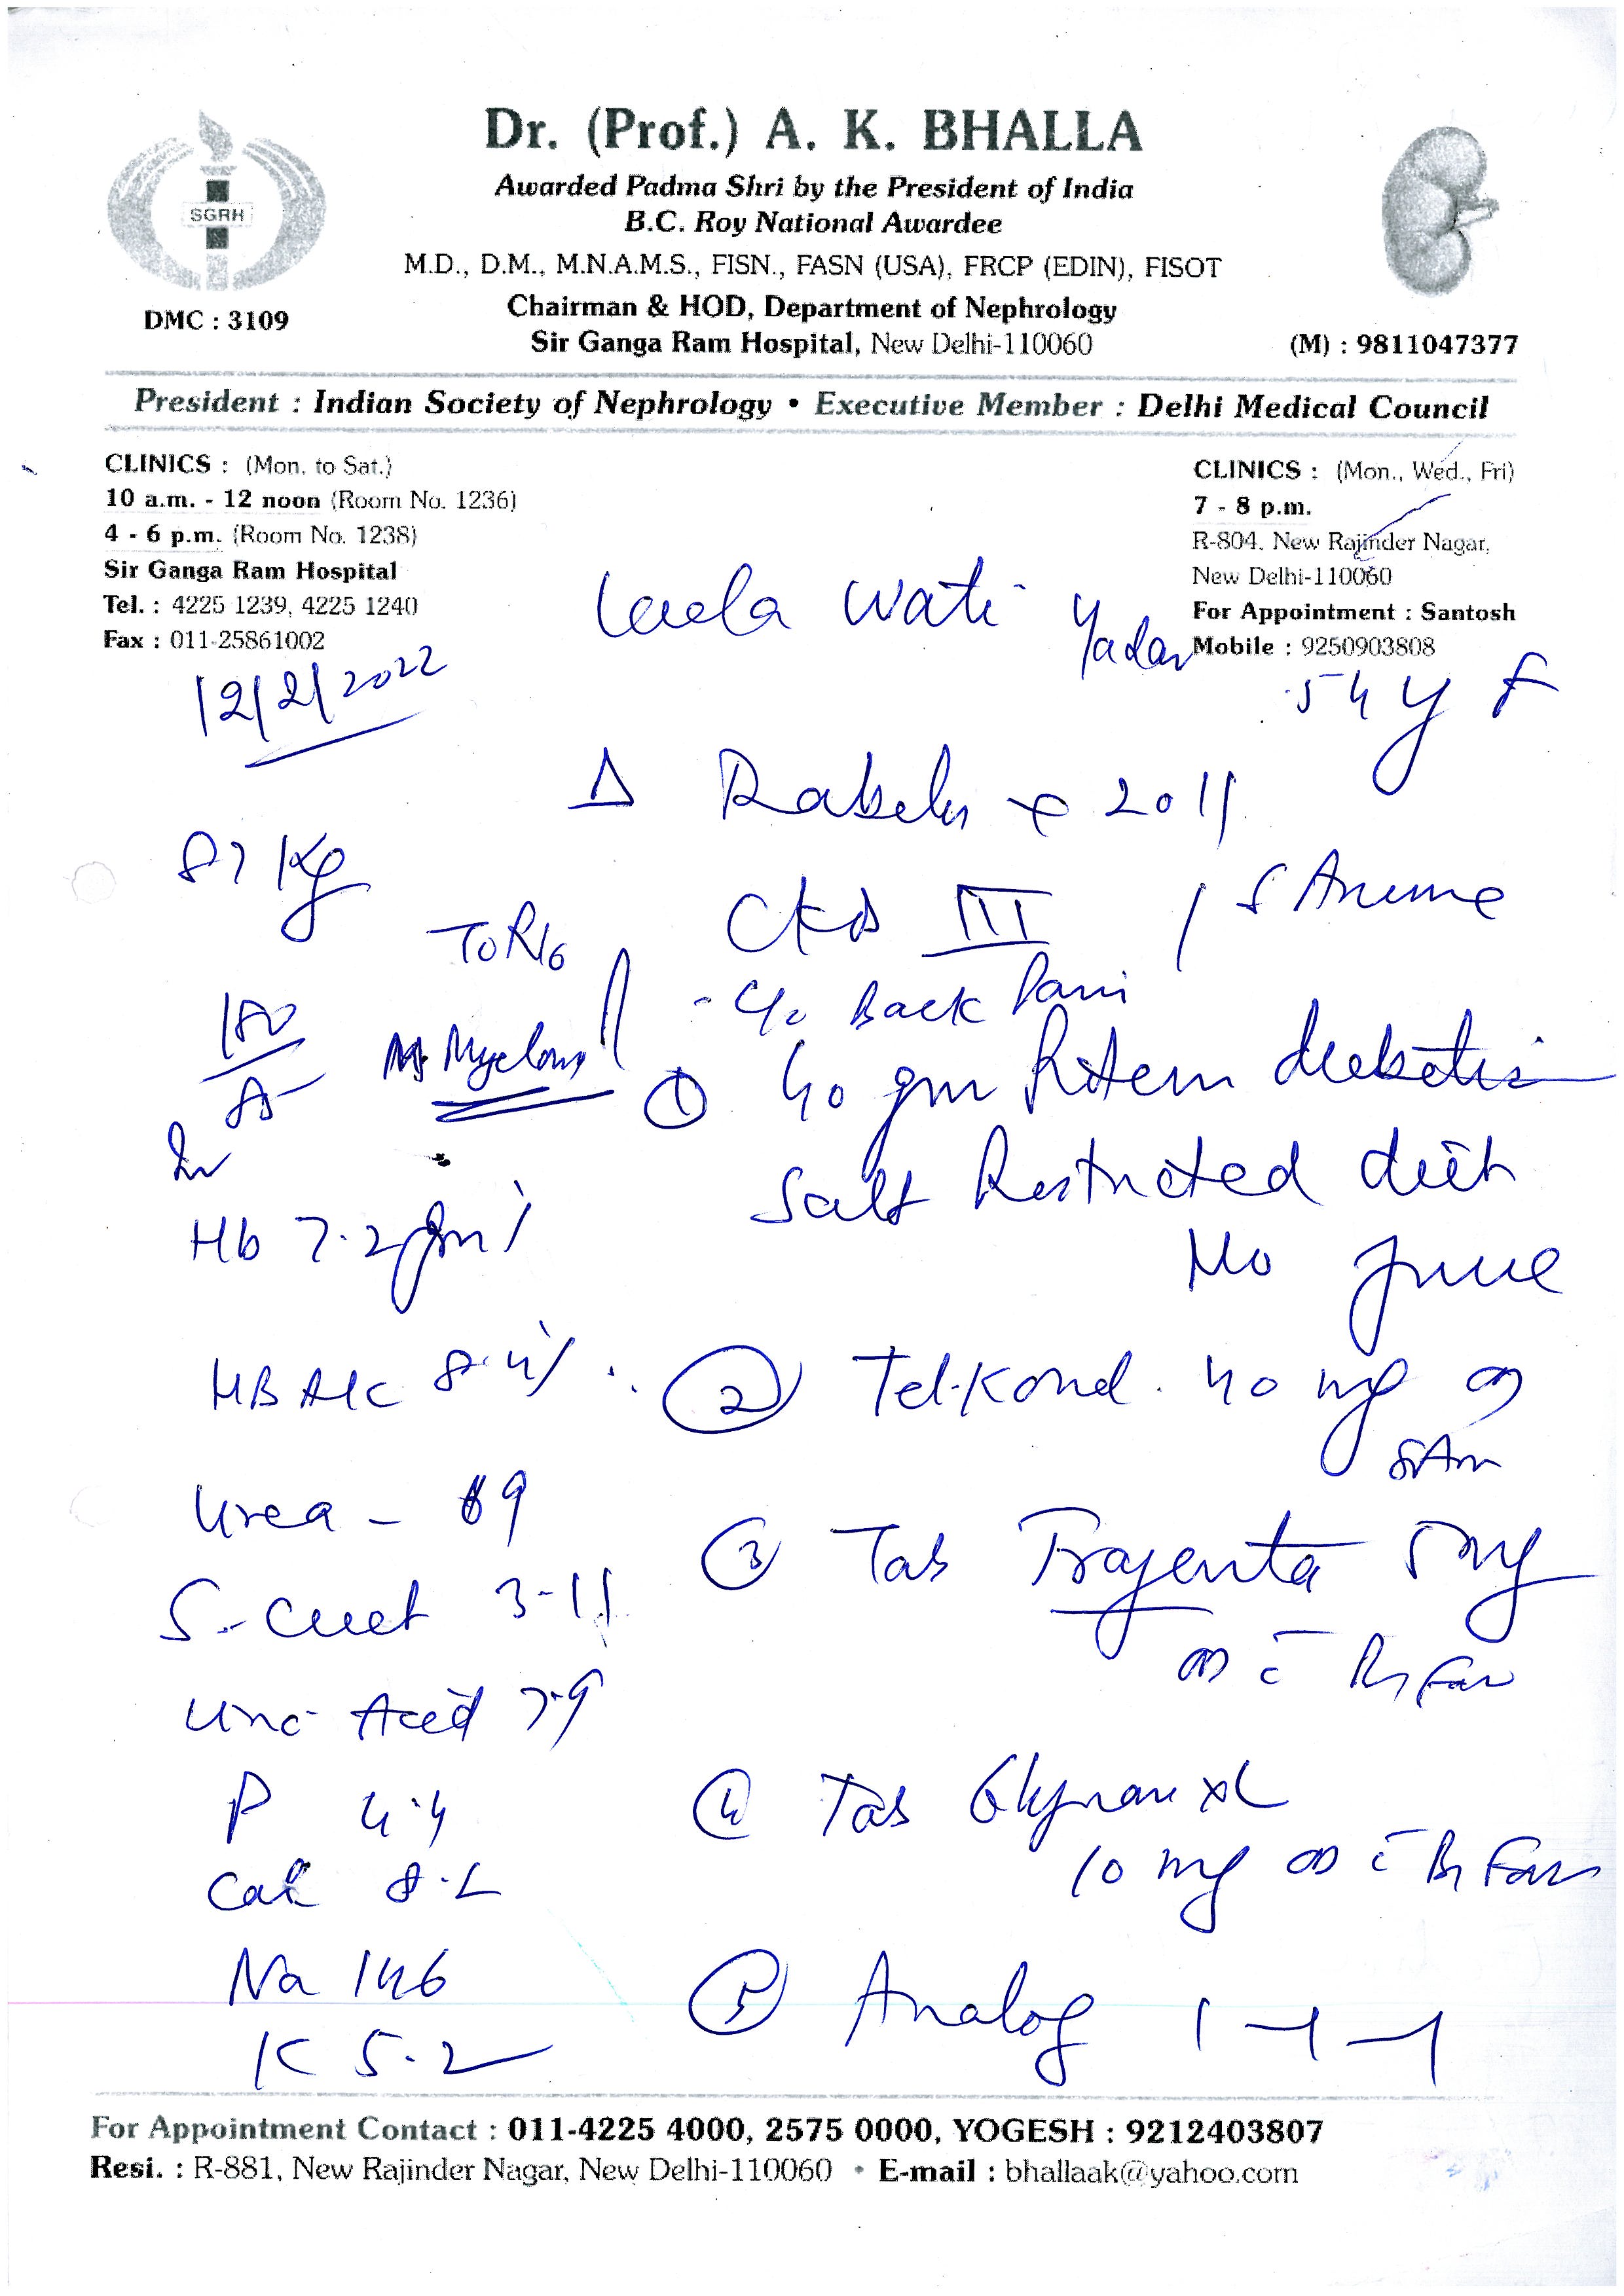 Dr. (Prof.) A. K. BHALLA
Awarded Padma Shri by the President of India
B.C. Roy National Awardee
M.D., D.M., M.N.A.M.S., FISN., FASN (USA), FRCP (EDIN), FISOT
Chairman & HOD, Department of Nephrology
Sir Ganga Ram Hospital, New Delhi-110060
SGRH
DMC : 3109
(M) : 9811047377
President : Indian Society of Nephrology • Executive Member : Delhi Medical Council
CLINICS : (Mon. to Sat.)
10 a.m. - 12 noon (Room No. 1236)
4 - 6 p.m. (Room No. 1238)
Sir Ganga Ram Hospital
Tel. : 4225 1239, 4225 1240
Fax : 011-25861002
CLINICS : (Mon., Wed., Fri)
7 - 8 p.m.
R-804, New Rajinder Nagar,
New Delhi-110060
For Appointment : Santosh
Mobile : 9250903808
Leela Wati Yadav
54 y F
12/2/2022
Δ 2011
87 Kg
CKD III
TO R/o
Back Pain
① 40 gm Protein diabetic
Salt Restricted diet
No Juice
Hb 7.2 gm
HBA1C 8.4%
② Telkonol 40 mg OD
8 Am
Urea - 69
③ Tab Trajenta 5 mg
OD c̄ Br Fas
S. Creat 3.11
Uric Acid 7.9
P 4.4
④ Tab Glynase XL
10 mg OD c̄ Br Fas
Cal 8.2
Na 146
⑤ Analog 1-1-1
K 5.2
For Appointment Contact : 011-4225 4000, 2575 0000, YOGESH : 9212403807
Resi. : R-881, New Rajinder Nagar, New Delhi-110060 • E-mail : bhallaak@yahoo.com